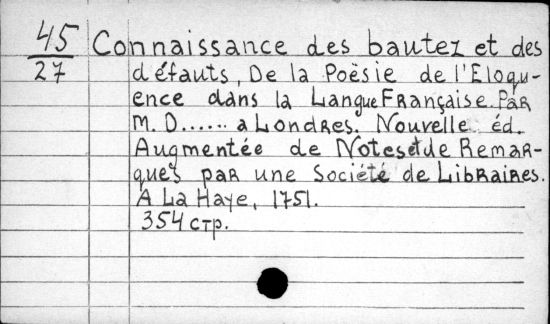 45
27
Connaissance des bautez et des
défauts, De la Poësie de l'Eloqu-
ence dans la Langue Française. Par
M. D...... a Londres. Nouvelle éd.
Augmentée de Notes et de Remar-
ques par une Société de Libraires.
A La Haye, 1751.
354 стр.